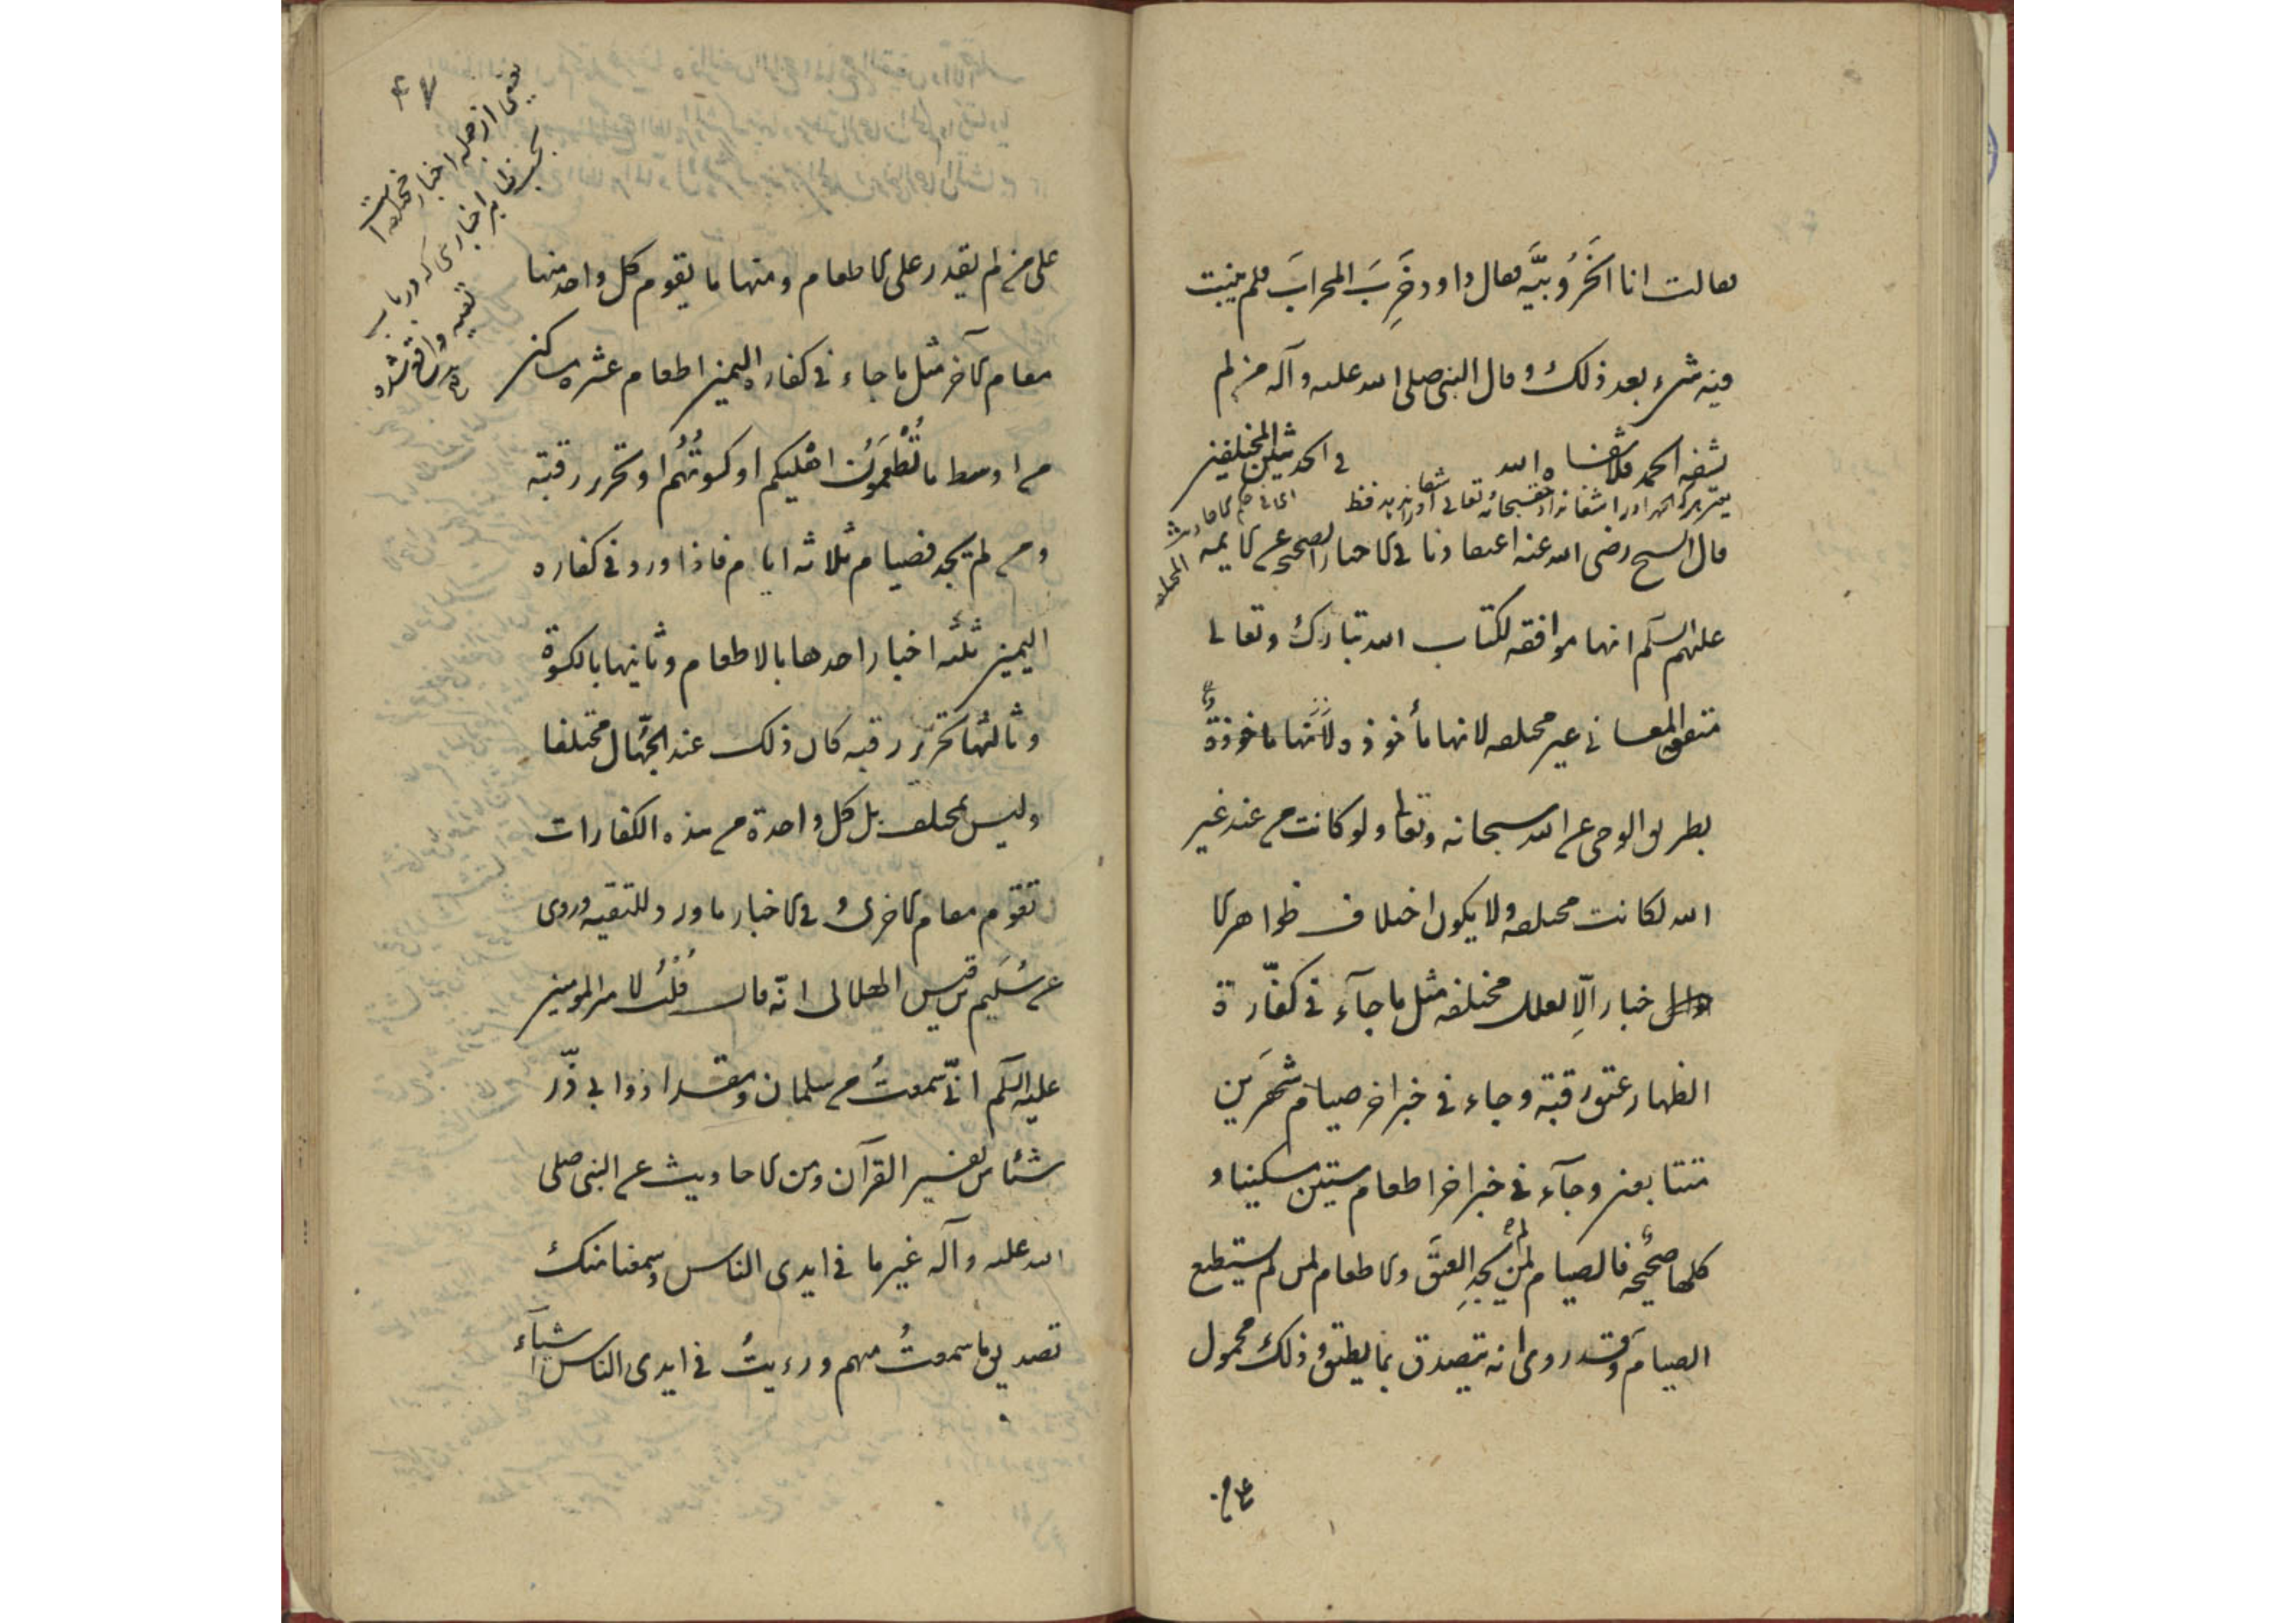 فقالت انا الخَرُوبيَّه فقال داود خَرِبَ المحرابَ فلم ينبت
فيه شىء بعد ذلك و قال النبى صلى الله عليه و آله من لم
يشفه الحمد فلا شفاه الله
فى الحديثين المختلفين
قال الشيخ رضى الله عنه اعتقادنا فى الاخبار الصحيحه عن الايمه
عليهم السلم انها موافقه لكتاب الله تبارك و تعالى
متفقه المعانى غير مختلفه لانها مأخوذه لِأَنَّها ماخوذةٌ
بطريق الوحى عن الله سبحانه و تعا و لو كانت من عند غير
الله لكانت مختلفه و لا يكون اختلاف ظواهر الا
خبار اِلّا لعلل مختلفه مثل ما جآء فى كفّارة
الظهار عتق رقبة و جاء فى خبر اخر صيام شهرَين
متتابعين و جآء فى خبر اخر اطعام ستين مسكينا و
كلها صحيحه فالصيام لمن لم يجدِ العتقَ و الاطعام لمن لم يستطع
الصيام و قد روى انه يتصدق بما يطيق و ذلك محمول
على من لم يقدر على الاطعام و منها ما يقوم كل واحد منها
مقام الآخر مثل ما جاء فى كفاره اليمين اطعام عشره مساكين
من اوسط ما تُطْعِمُونَ اهليكم او كسوتُهُم او تحرير رقبة
و من لم يجد فصيام ثلاثه ايام فاذا ورد فى كفاره
اليمين ثلثه اخبار احدها بالاطعام و ثانيها بالكسوة
و ثالثها بتحرير رقبه كان ذلك عند الجُهّال مختلفا
و ليس بمختلف بل كل واحدة من هذه الكفارات
تقوم مقام الاخرى و فى الاخبار ما ورد للتقيه و روى
عن سُلَيم بن قيس الهلالى انّه قال قُلْتُ لامير المومنين
عليه السلم انّى سمعتُ من سلمان و مقداد و ابى ذّر
شئا من تفسير القرآن و من الاحاديث عن النبى صلى
الله عليه و آله غير ما فى ايدى الناس و سمعنا منك
تصديق ما سمعتُ منهم و رءيتُ فى ايدى الناس اشيآء
يعنى از جمله اخبار مختلفه است
بحسب ظاهر اخبارى كه در باب
تقيه واقع شده